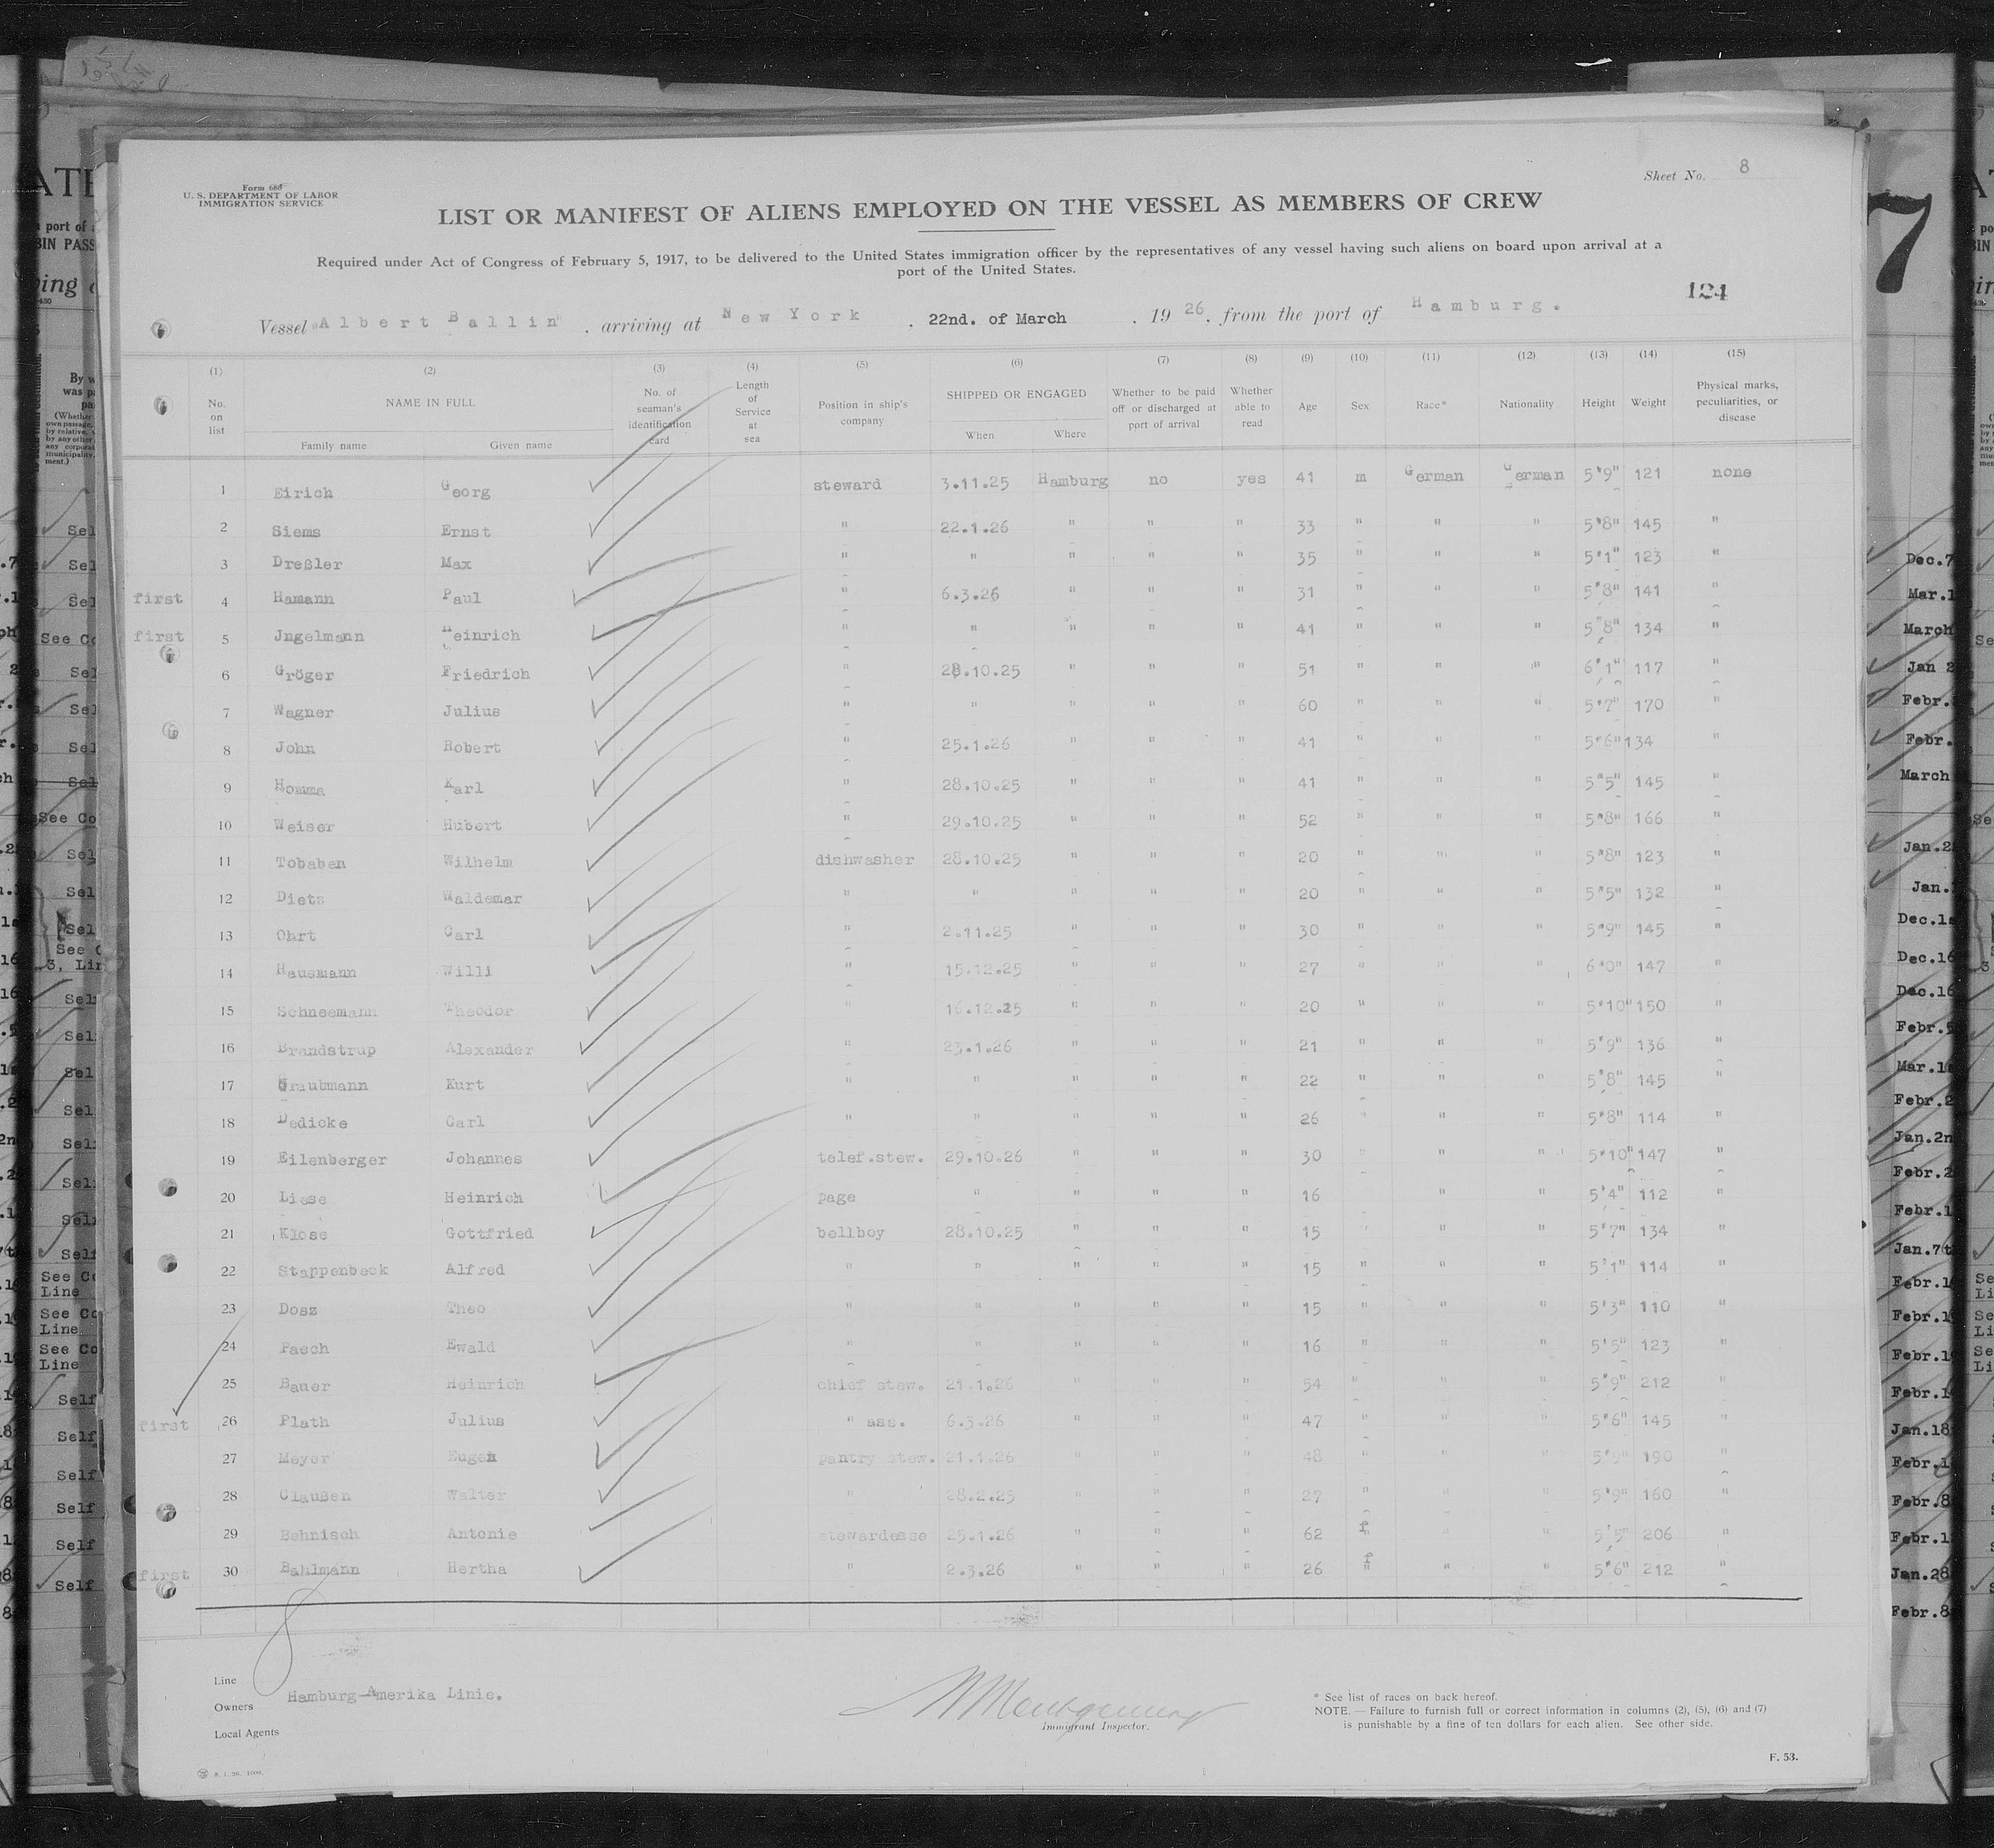 Sheet No. 8
Form 680
U. S. DEPARTMENT OF LABOR
IMMIGRATION SERVICE
LIST OR MANIFEST OF ALIENS EMPLOYED ON THE VESSEL AS MEMBERS OF CREW
Required under Act of Congress of February 5, 1917, to be delivered to the United States immigration officer by the representatives of any vessel having such aliens on board upon arrival at a
port of the United States.
124
Vessel "Albert Ballin" , arriving at New York , 22nd. of March , 1926, from the port of Hamburg.
(1) (2) (3) (4) (5) (6) (7) (8) (9) (10) (11) (12) (13) (14) (15)
No. on list NAME IN FULL Family name Given name No. of seaman's identification card Length of Service at sea Position in ship's company SHIPPED OR ENGAGED When Where Whether to be paid off or discharged at port of arrival Whether able to read Age Sex Race* Nationality Height Weight Physical marks, peculiarities, or disease
1 Eirich Georg steward 3.11.25 Hamburg no yes 41 m German German 5'9" 121 none
2 Siems Ernst " 22.1.26 " " " 33 " " " 5'8" 145 "
3 Dreßler Max " " " " " 35 " " " 5'1" 123 "
first 4 Hamann Paul " 6.3.26 " " " 31 " " " 5'8" 141 "
first 5 Jngelmann Heinrich " " " " " 41 " " " 5'8" 134 "
6 Gröger Friedrich " 28.10.25 " " " 51 " " " 6'1" 117 "
7 Wagner Julius " " " " " 60 " " " 5'7" 170 "
8 John Robert " 25.1.26 " " " 41 " " " 5'6" 134 "
9 Homma Karl " 28.10.25 " " " 41 " " " 5'5" 145 "
10 Weiser Hubert " 29.10.25 " " " 52 " " " 5'8" 166 "
11 Tobaben Wilhelm dishwasher 28.10.25 " " " 20 " " " 5'8" 123 "
12 Dietz Waldemar " " " " " 20 " " " 5'5" 132 "
13 Ohrt Carl " 2.11.25 " " " 30 " " " 5'9" 145 "
14 Hausmann Willi " 15.12.25 " " " 27 " " " 6'0" 147 "
15 Schneemann Theodor " 16.12.25 " " " 20 " " " 5'10" 150 "
16 Brandstrup Alexander " 23.1.26 " " " 21 " " " 5'9" 136 "
17 Graubmann Kurt " " " " " 22 " " " 5'8" 145 "
18 Dedicke Carl " " " " " 26 " " " 5'8" 114 "
19 Eilenberger Johannes telef.stew. 29.10.26 " " " 30 " " " 5'10" 147 "
20 Liese Heinrich page " " " " 16 " " 5'4" 112 "
21 Klose Gottfried bellboy 28.10.25 " " " 15 " " " 5'7" 134 "
22 Stappenbeck Alfred " " " " " 15 " " " 5'1" 114 "
23 Dosz Theo " " " " " 15 " " " 5'3" 110 "
24 Paech Ewald " " " " " 16 " " " 5'5" 123 "
25 Bauer Heinrich chief stew. 21.1.26 " " " 54 " " " 5'9" 212 "
first 26 Plath Julius " ass. 6.3.26 " " " 47 " " " 5'6" 145 "
27 Meyer Eugen pantry stew. 21.1.26 " " " 48 " " " 5'9" 190 "
28 Claußen Walter " 28.2.25 " " " 27 " " " 5'9" 160 "
29 Behnisch Antonie stewardesse 25.1.26 " " " 62 f " " 5'5" 206 "
first 30 Bahlmann Hertha " 2.3.26 " " " 26 f " " 5'6" 212 "
8
Line
Owners Hamburg-Amerika Linie.
Local Agents
Montgomery
Immigrant Inspector.
* See list of races on back hereof.
NOTE. — Failure to furnish full or correct information in columns (2), (5), (6) and (7)
is punishable by a fine of ten dollars for each alien. See other side.
F. 53.